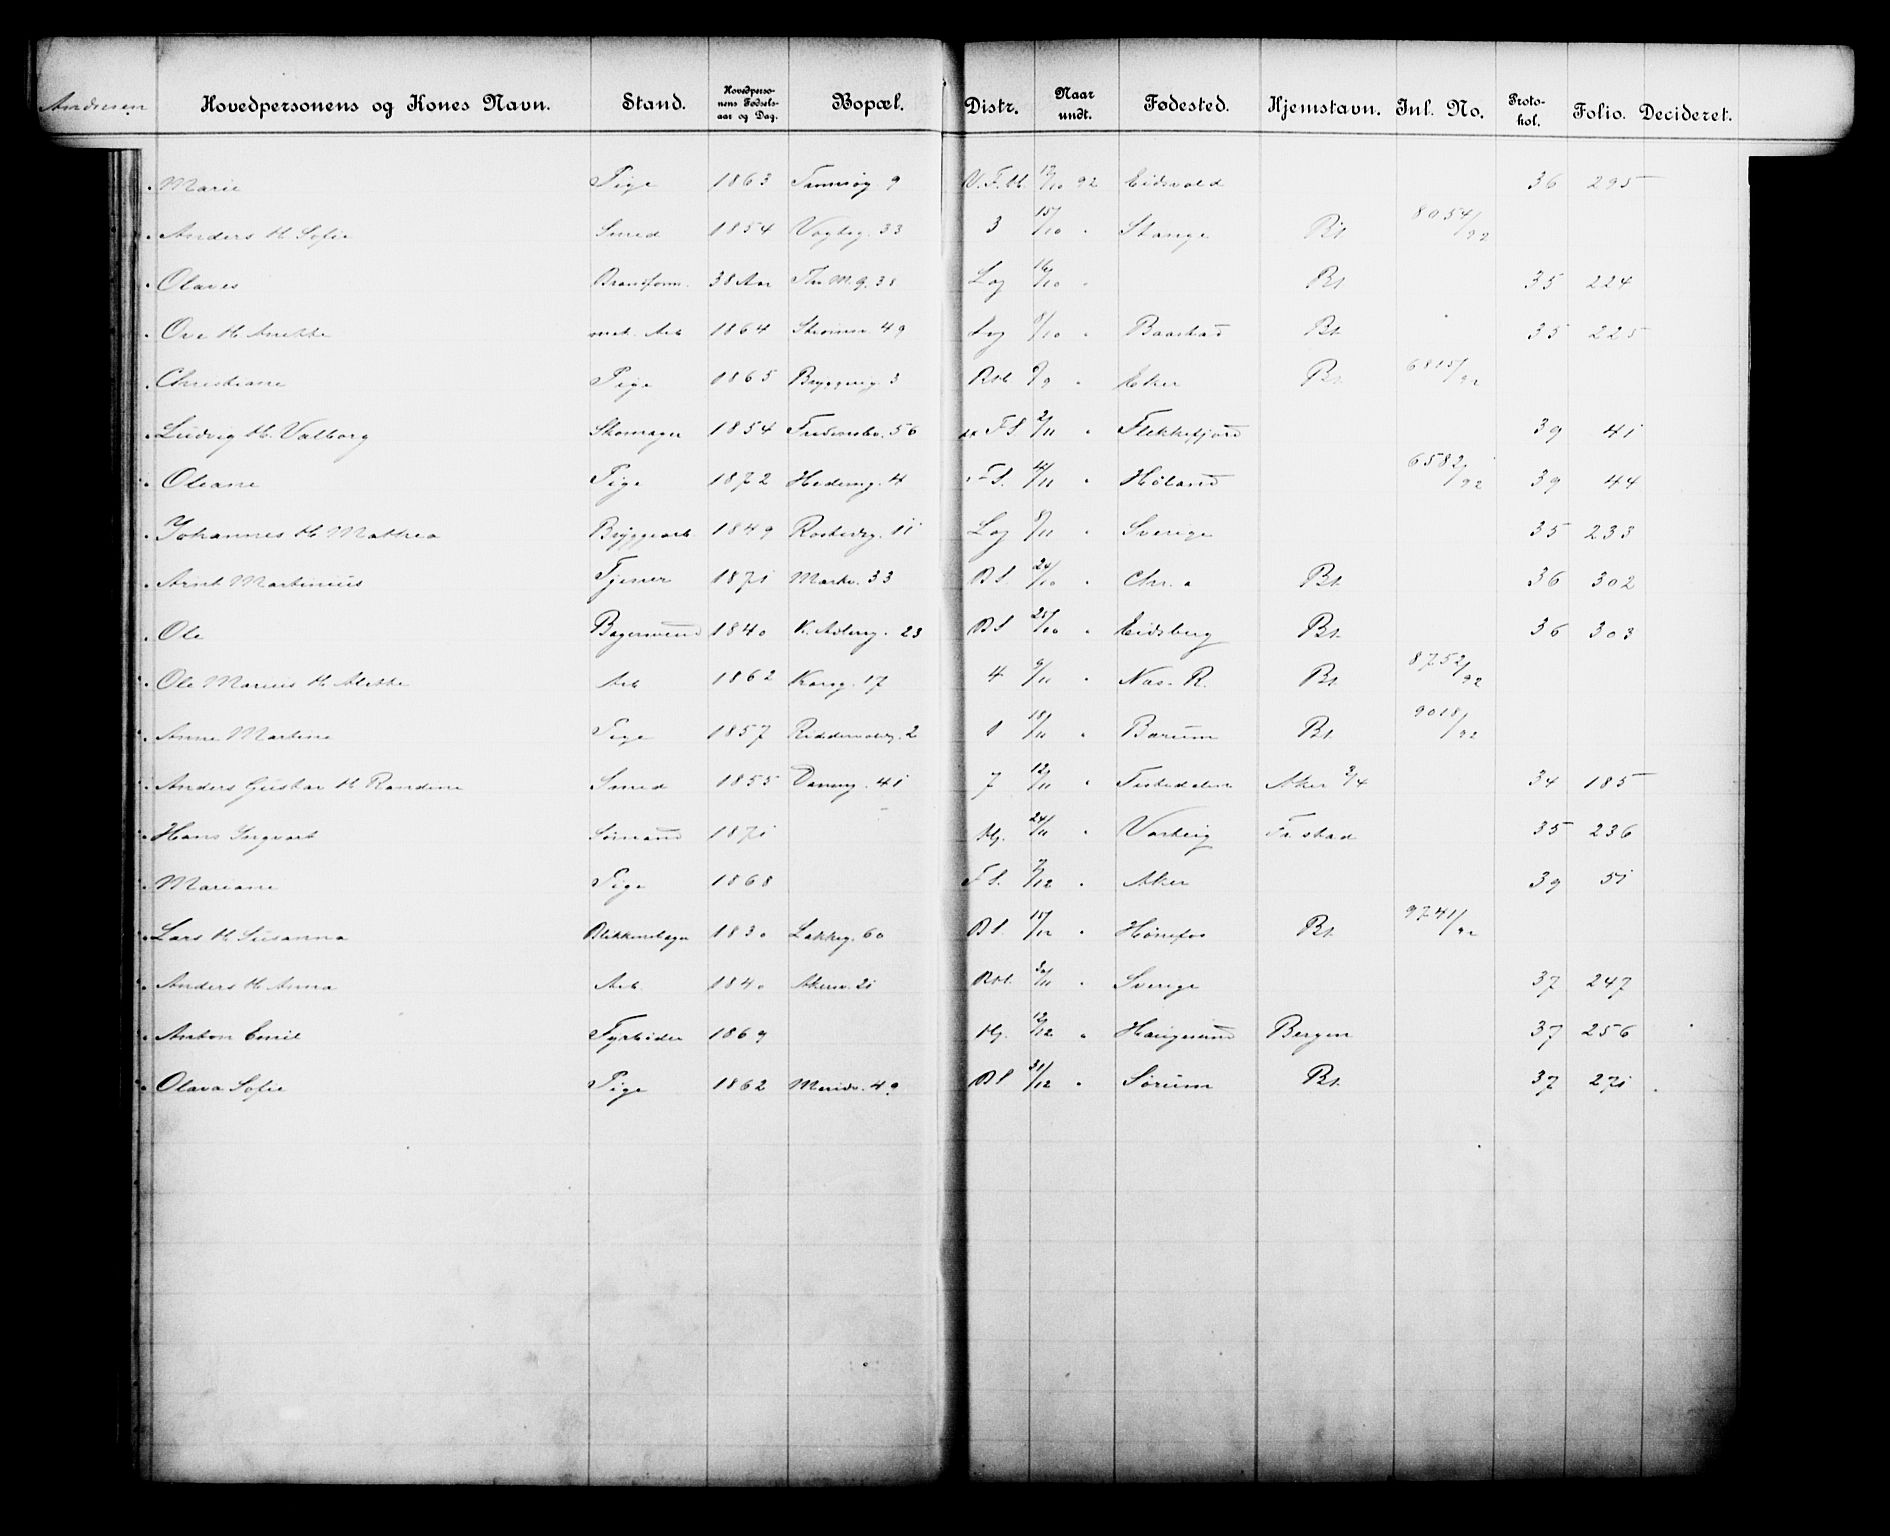 Andresen
Hovedpersonens og Kones Navn. Stand. Hovedpersonens Fødselsaar og Dag. Bopæl. Distr. Naar undt. Fødested. Hjemstavn. Inl. No. Protokol. Folio. Decideret.
Marie Pige 1863 9 V. F. bl. 12/10 92 Eidsvold 36 295
Anders H Sofie Smed 1854 Vogtsg. 33 3 15/10 " Stange Bt. 8054/92
Olaves 38 Aar Thv M. g. 38 Log 16/10 " Bt. 35 224
Ove H Anethe Arb 1864 49 Log 8/10 " Baastad Bt. 35 225
Christiane Pige 1865 Bryggerig. 3 Rbl 9/9 " Eker Bt. 6815/92
Ludvig H. Valborg Skomager 1854 56 F.S. 2/11 " Flekkefjord 39 41
Oleane Pige 1872 Hedemg. 4 F.S. 4/11 " Høland 6582/92 39 44
Johannes H Mathea Bryggearb 1849 11 Log 8/11 " Sverige 35 233
Arnt Martinius Tjener 1871 Markv. 33 B S 24/10 " Chr.a Bt. 36 302
Ole Bagersvend 1840 K. Adlersg. 23 B S 25/10 " Eidsberg Bt. 36 303
Ole Marius H Alethe Arb 1862 Korsg. 17 4 9/11 " Næs. R. Bt. 8752/92
Anne Martine Pige 1857 Riddervoldsg. 2 1 18/11 " Bærum Bt. 9018/92
Anders Gustav H Randine Smed 1855 41 7 12/11 " Tistedalen Aker 3/4 34 185
Hans Ingvart Sømand 1871 Hj. 24/11 " Varteig Fr.stad 35 236
Mariane Pige 1868 F S. 7/12 " Aker 39 51
Lars H Susanna Blikkenslager 1830 Lakkeg. 60 B S. 15/12 " Hønefos Bt. 9741/92
Anders H Anna Arb. 1840 Akersv. 21 Rbl. 30/11 " Sverige 37 247
Anton Emil Fyrbøder 1869 Hj. 12/12 " Haugesund Bergen 37 256
Olava Sofie Pige 1862 49 B S 31/12 " Sørum Bt. 37 271